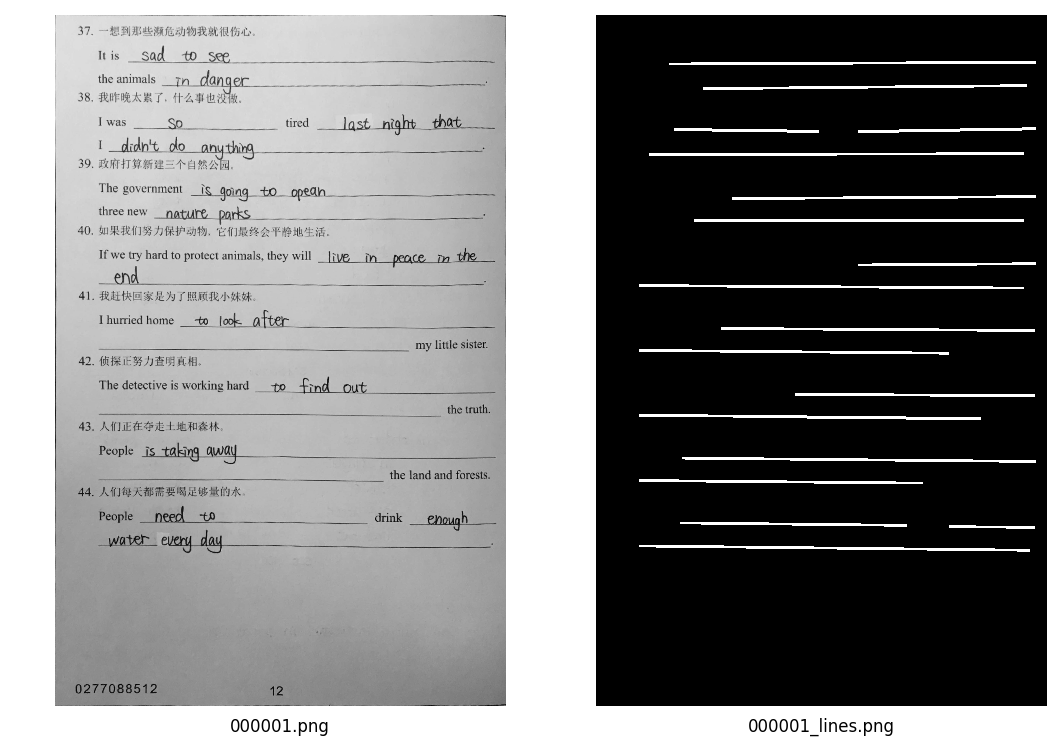 37. 一想到那些濒危动物我就很伤心。
It is sad to see
the animals in danger.
38. 我昨晚太累了，什么事也没做。
I was so tired last night that
I didn't do anything.
39. 政府打算新建三个自然公园。
The government is going to opean
three new nature parks.
40. 如果我们努力保护动物，它们最终会平静地生活。
If we try hard to protect animals, they will live in peace in the
end.
41. 我赶快回家是为了照顾我小妹妹。
I hurried home to look after
my little sister.
42. 侦探正努力查明真相。
The detective is working hard to find out
the truth.
43. 人们正在夺走土地和森林。
People is taking away
the land and forests.
44. 人们每天都需要喝足够量的水。
People need to drink enough
water every day.
0277088512 12
000001.png 000001_lines.png